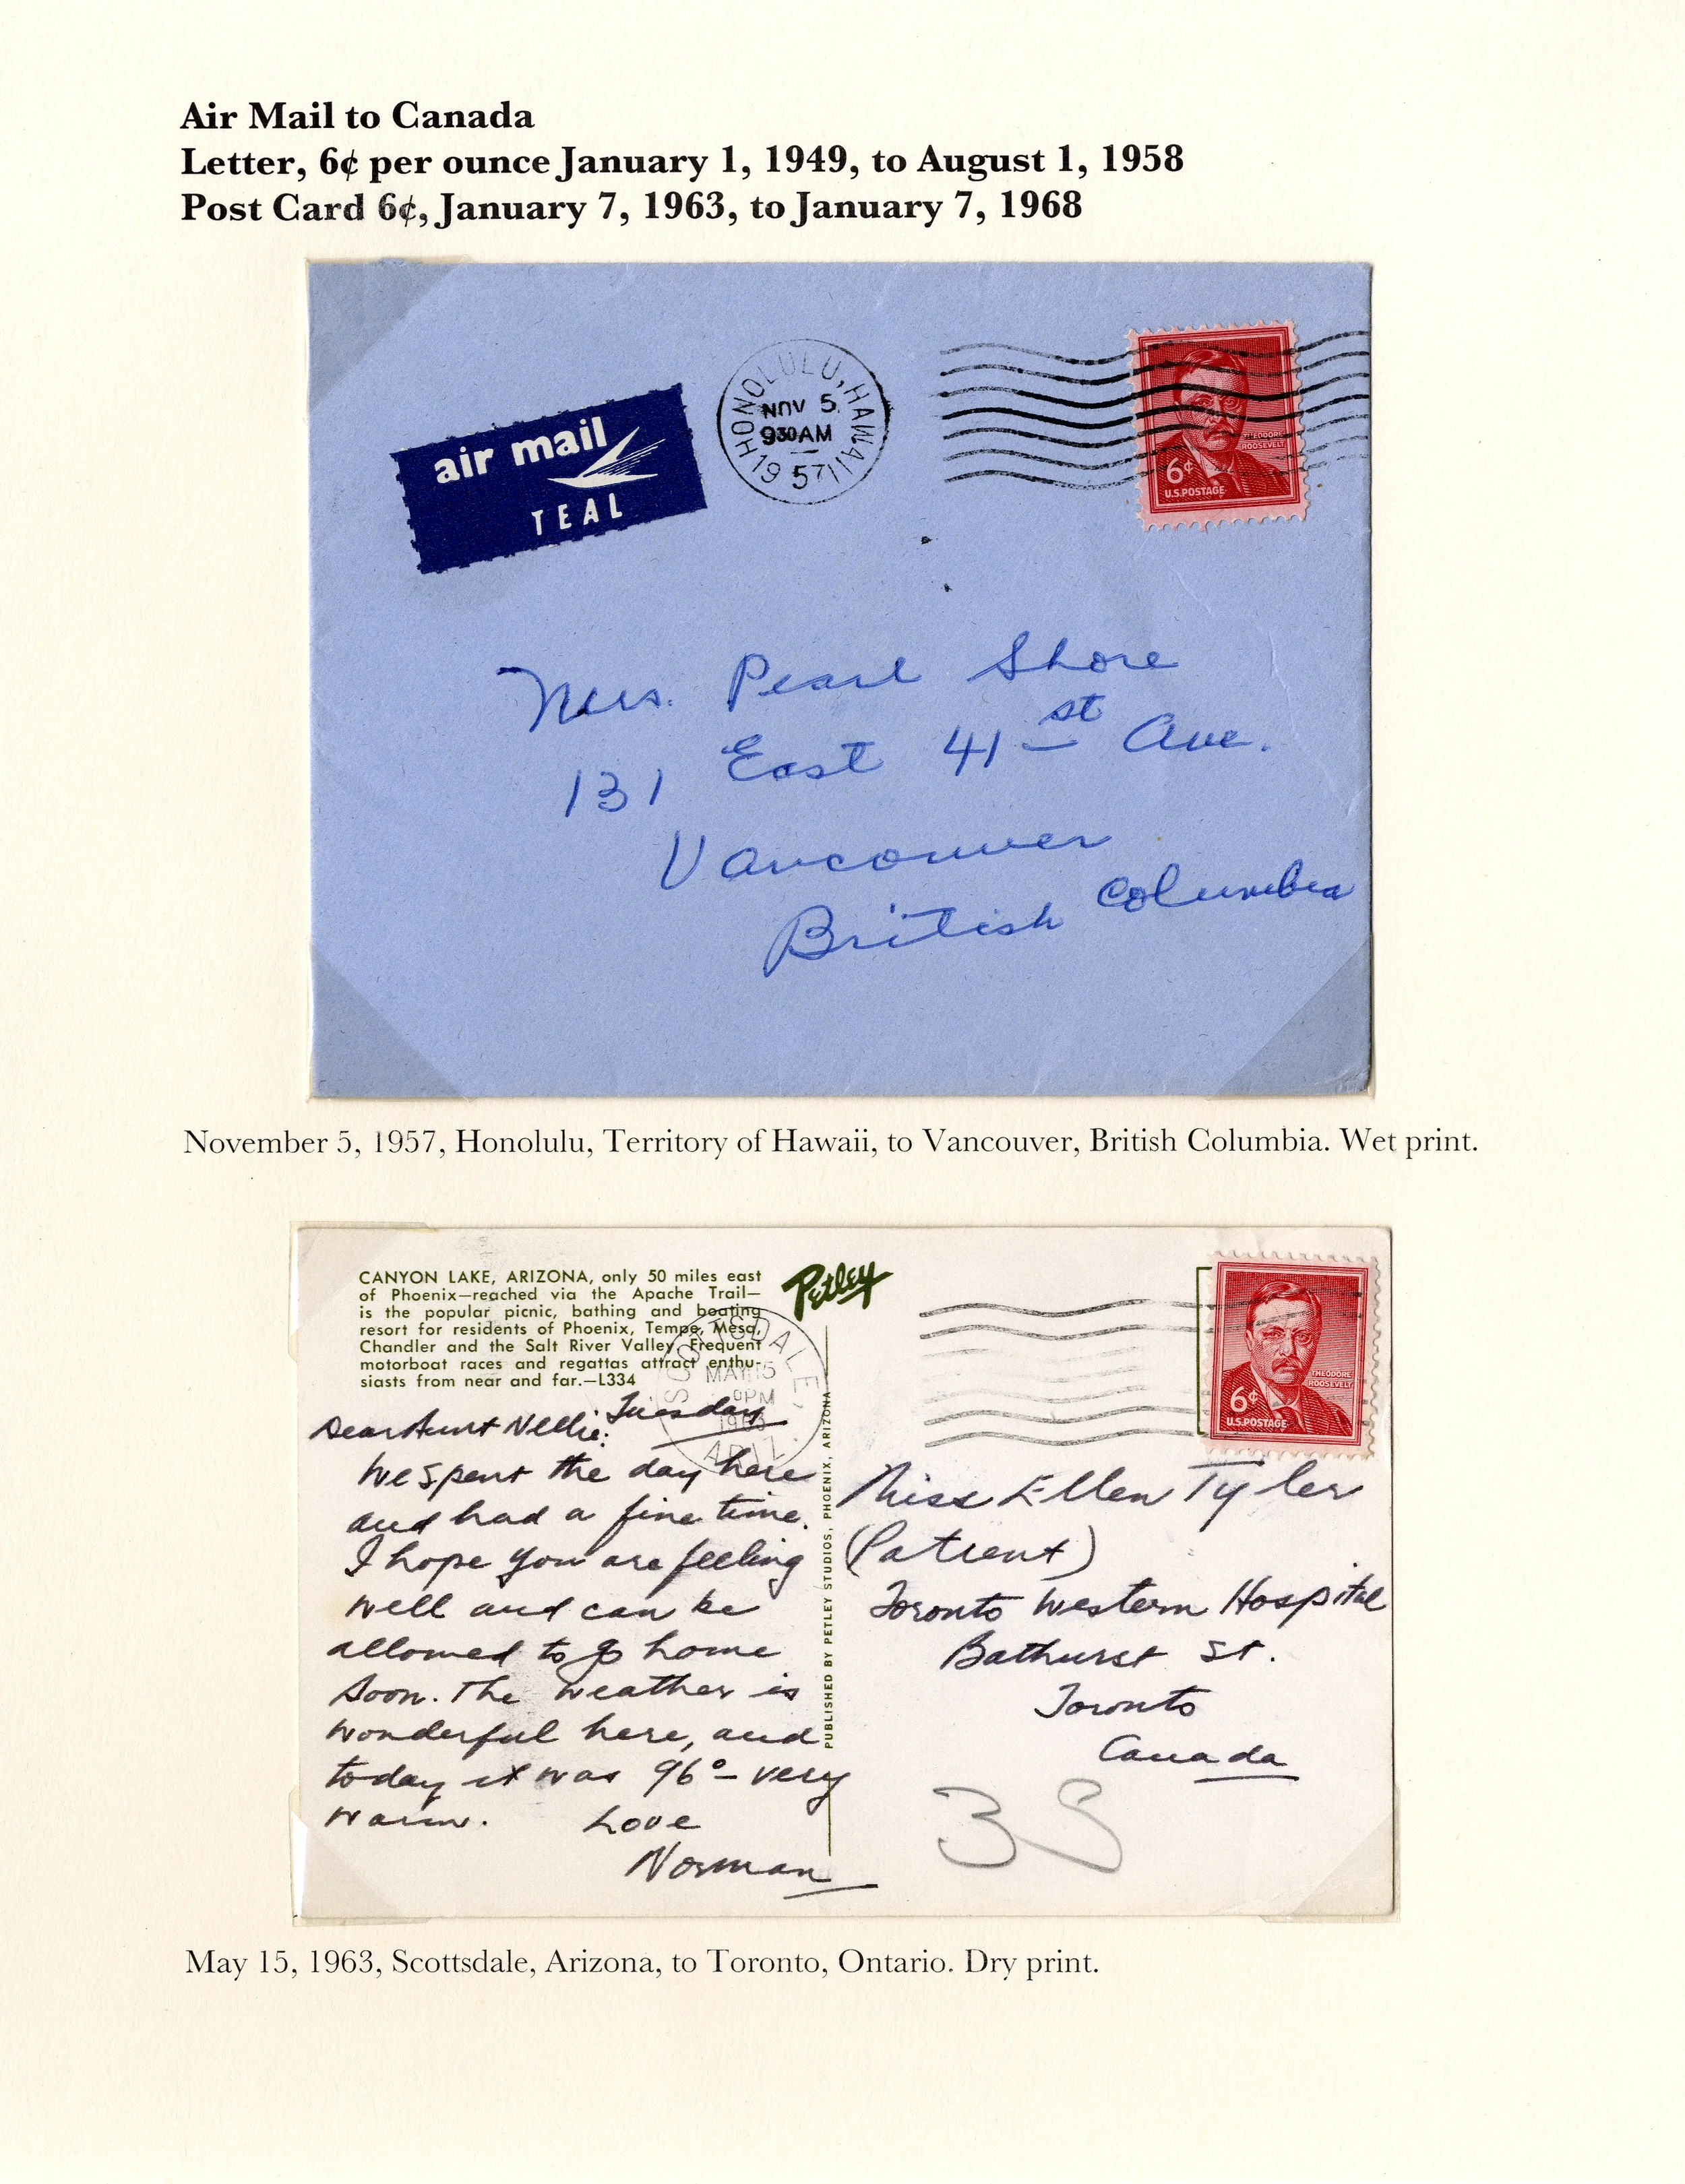 Air Mail to Canada
Letter, 6¢ per ounce January 1, 1949, to August 1, 1958
Post Card 6¢, January 7, 1963, to January 7, 1968
air mail
TEAL
HONOLULU, HAWAII
NOV 5
930AM
1957
THEODORE
ROOSEVELT
6¢
U.S.POSTAGE
Mrs. Pearl Shore
131 East 41st Ave.
Vancouver
British Columbia
November 5, 1957, Honolulu, Territory of Hawaii, to Vancouver, British Columbia. Wet print.
CANYON LAKE, ARIZONA, only 50 miles east
of Phoenix—reached via the Apache Trail—
is the popular picnic, bathing and boating
resort for residents of Phoenix, Tempe, Mesa,
Chandler and the Salt River Valley. Frequent
motorboat races and regattas attract enthu-
siasts from near and far.—L334
Petley
SCOTTSDALE,
MAY 15
PM
1963
ARIZ.
THEODORE
ROOSEVELT
6¢
U.S.POSTAGE
Tuesday
Dear Aunt Nellie:
We spent the day here
and had a fine time.
I hope you are feeling
well and can be
allowed to go home
soon. The weather is
wonderful here, and
today it was 96°– very
warm. Love
Norman
PUBLISHED BY PETLEY STUDIOS, PHOENIX, ARIZONA
Miss Ellen Tyler
(Patient)
Toronto Western Hospital
Bathurst St.
Toronto
Canada
May 15, 1963, Scottsdale, Arizona, to Toronto, Ontario. Dry print.